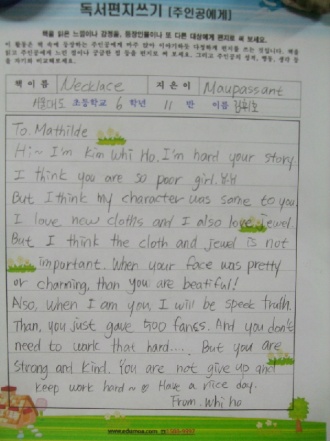 독서편지쓰기 [주인공에게]
책을 읽은 느낌이나 감정을, 등장인물이나 또 다른 대상에게 편지로 써 보세요.
책 이 름 Necklace 지 은 이 Maupassant
초등학교 6 학년 11 반 이름
To. Mathilde
Hi~ I'm Kim Whi Ho. I'm hard your story.
I think you are so poor girl.
But I think my character was same to you.
I love new cloths and I also love jewel.
But I think the cloth and jewel is not
important. When your face was pretty
or charming, than you are beatiful!
Also, when I am you, I will be speek truth.
Than, you just gave 500 fancs. And you don't
need to work that hard.... But you are
strong and kind. You are not give up and
keep work hard~ Have a nice day.
From. Whi ho